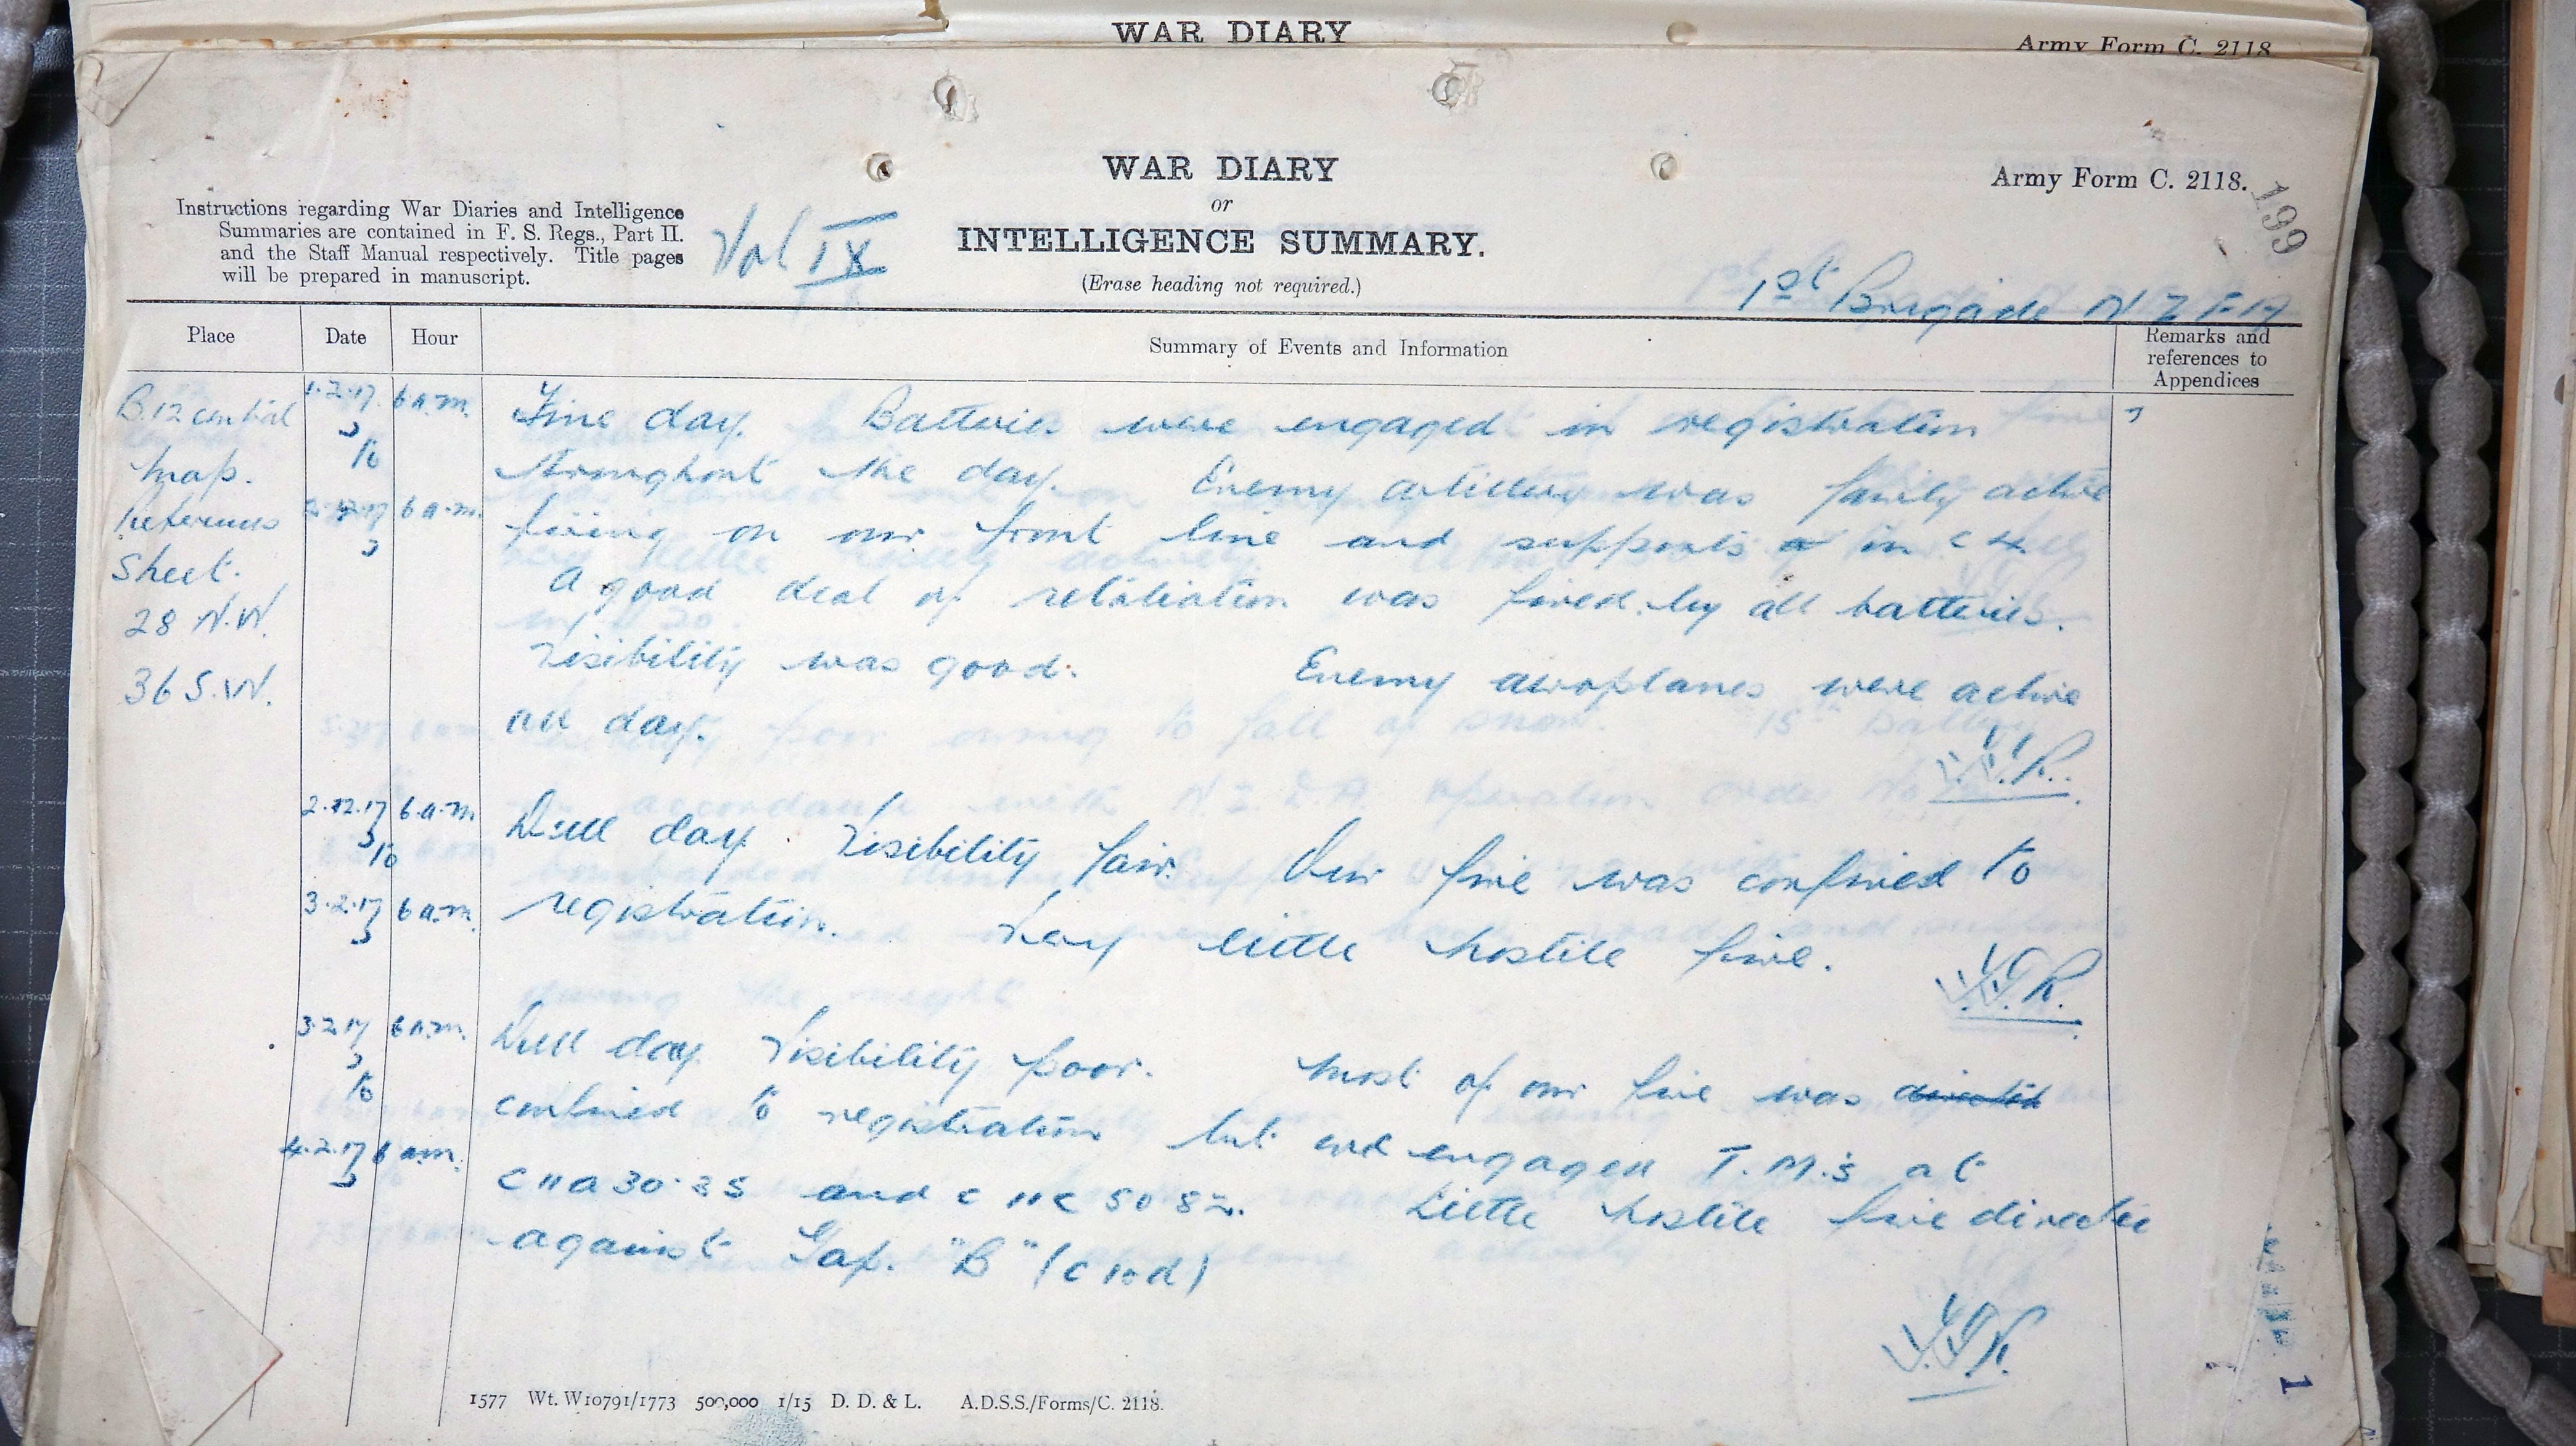 WAR DIARY
Army Form C. 2118
WAR DIARY
or
INTELLIGENCE SUMMARY.
(Erase heading not required.)
Army Form C. 2118.
199
Instructions regarding War Diaries and Intelligence
Summaries are contained in F. S. Regs., Part II.
and the Staff Manual respectively. Title pages
will be prepared in manuscript.
Vol IX
1st Brigade N Z F A
Place
Date
Hour
Summary of Events and Information
Remarks and
references to
Appendices
B.12 central
Map.
References
Sheet.
28 N.W.
36 S.W.
1.2.17 6 a.m.
to
6 a.m.
Fine day. Batteries were engaged in registration
throughout the day. Enemy artillery was fairly active
firing on our front line and supports in C 4.
A good deal of retaliation was fired by all batteries.
Visibility was good. Enemy aeroplanes were active
all day.
2.2.17 6.a.m
to
3.2.17 6 a.m.
Dull day. Visibility fair. Our fire was confined to
registration. Very little hostile fire.
3.2.17 6 a.m.
to
4.2.17 6 a.m.
Dull day. Visibility poor. Most of our fire was directed
confined to registration but we engaged T.M.s at
C 11 a 30.35 and C 11 c 50 82. Little hostile fire directed
against Gap. "B" (C 10 d)
1577 Wt. W10791/1773 500,000 1/15 D. D. & L. A.D.S.S./Forms/C. 2118.
1